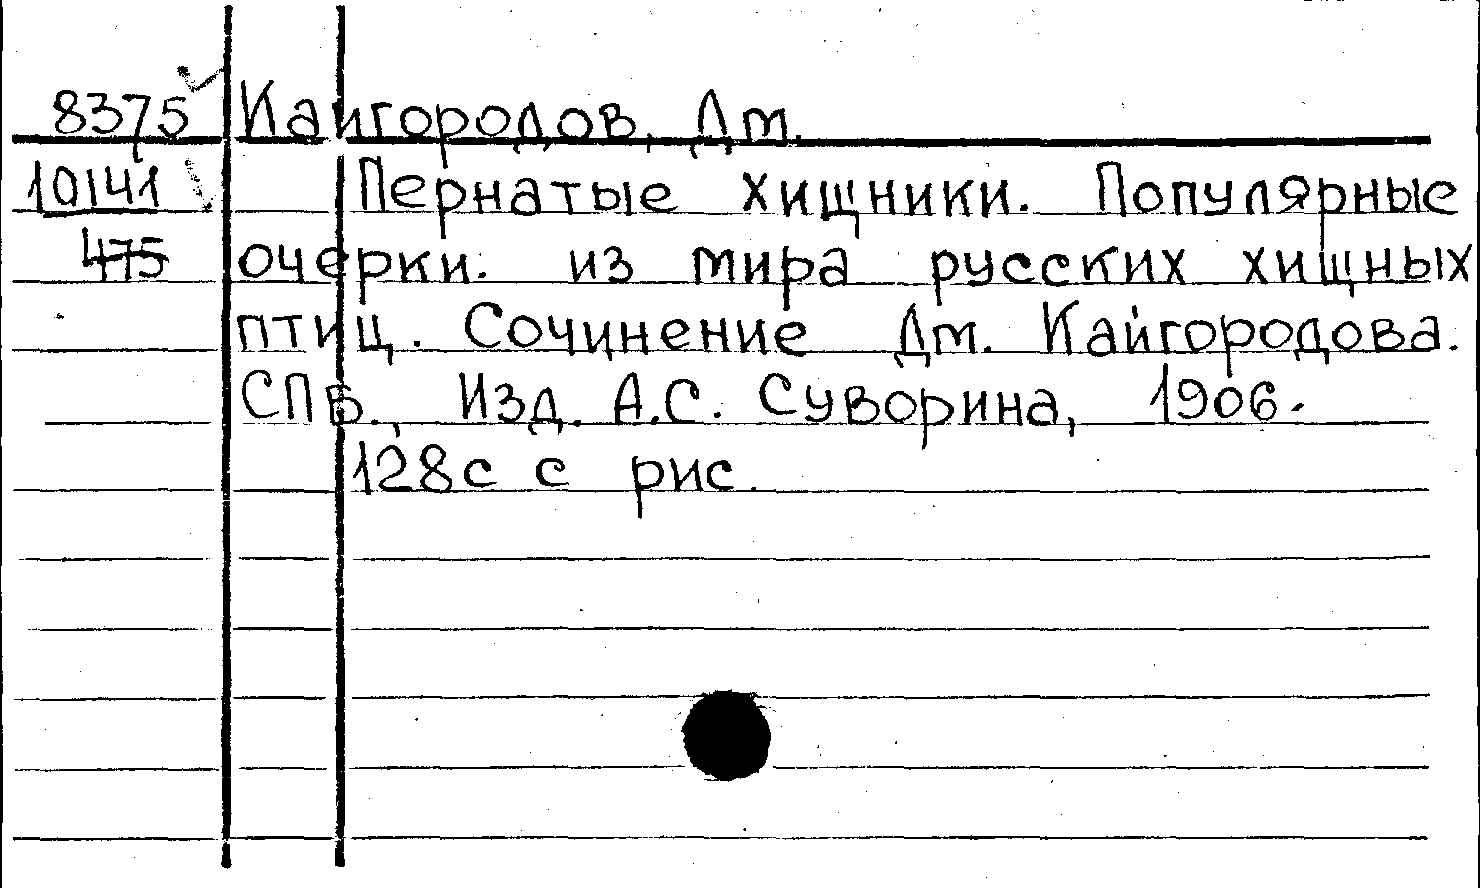 8375 Кайгородов, Дм.
10141 Пернатые хищники. Популярные
475 очерки. из мира русских хищных
птиц. Сочинение Дм. Кайгородова.
СПБ., Изд. А.С. Суворина, 1906.
128с с рис.